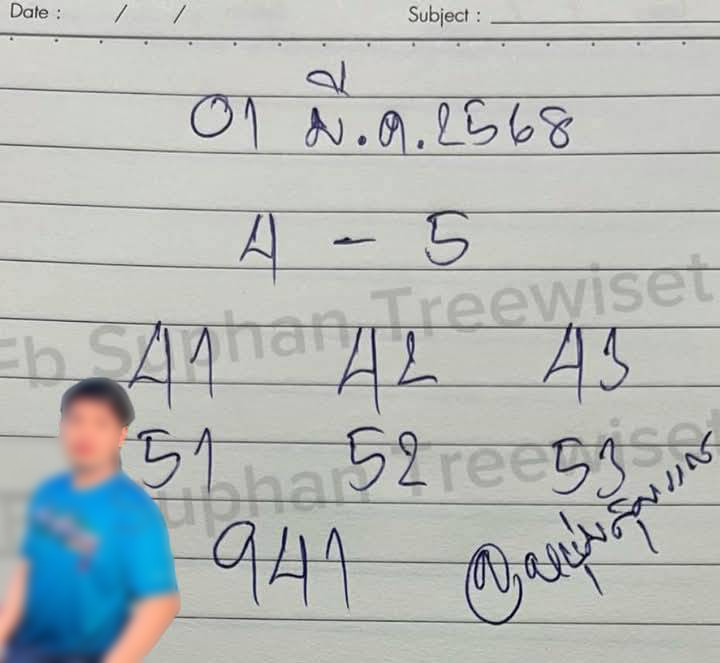 Date : / / Subject :
01 มี.ค.2568
4 - 5
41 42 43
51 52 53
941
Fb Suphan Treewiset
Suphan Treewiset